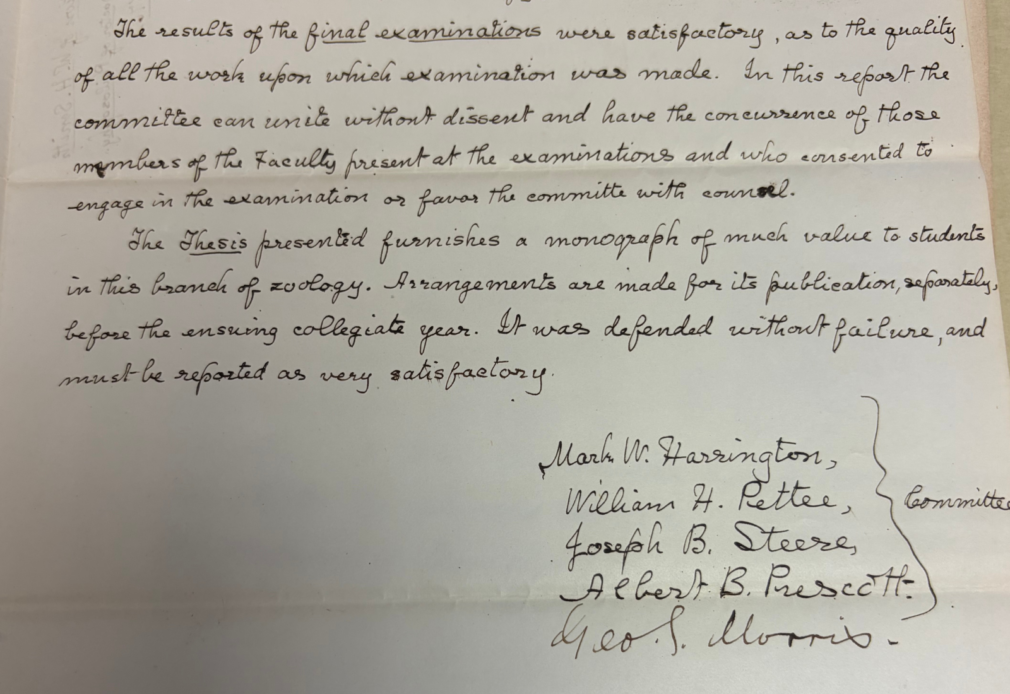 The results of the final examinations were satisfactory, as to the quality
of all the work upon which examination was made. In this report the
committee can unite without dissent and have the concurrence of those
members of the Faculty present at the examinations and who consented to
engage in the examination or favor the committe with counsel.
The Thesis presented furnishes a monograph of much value to students
in this branch of zoology. Arrangements are made for its publication, separately,
before the ensuing collegiate year. It was defended without failure, and
must be reported as very satisfactory.
Mark W. Harrington,
William H. Pettee,
Joseph B. Steere,
Albert B. Prescott.
Geo. S. Morris.
Committee